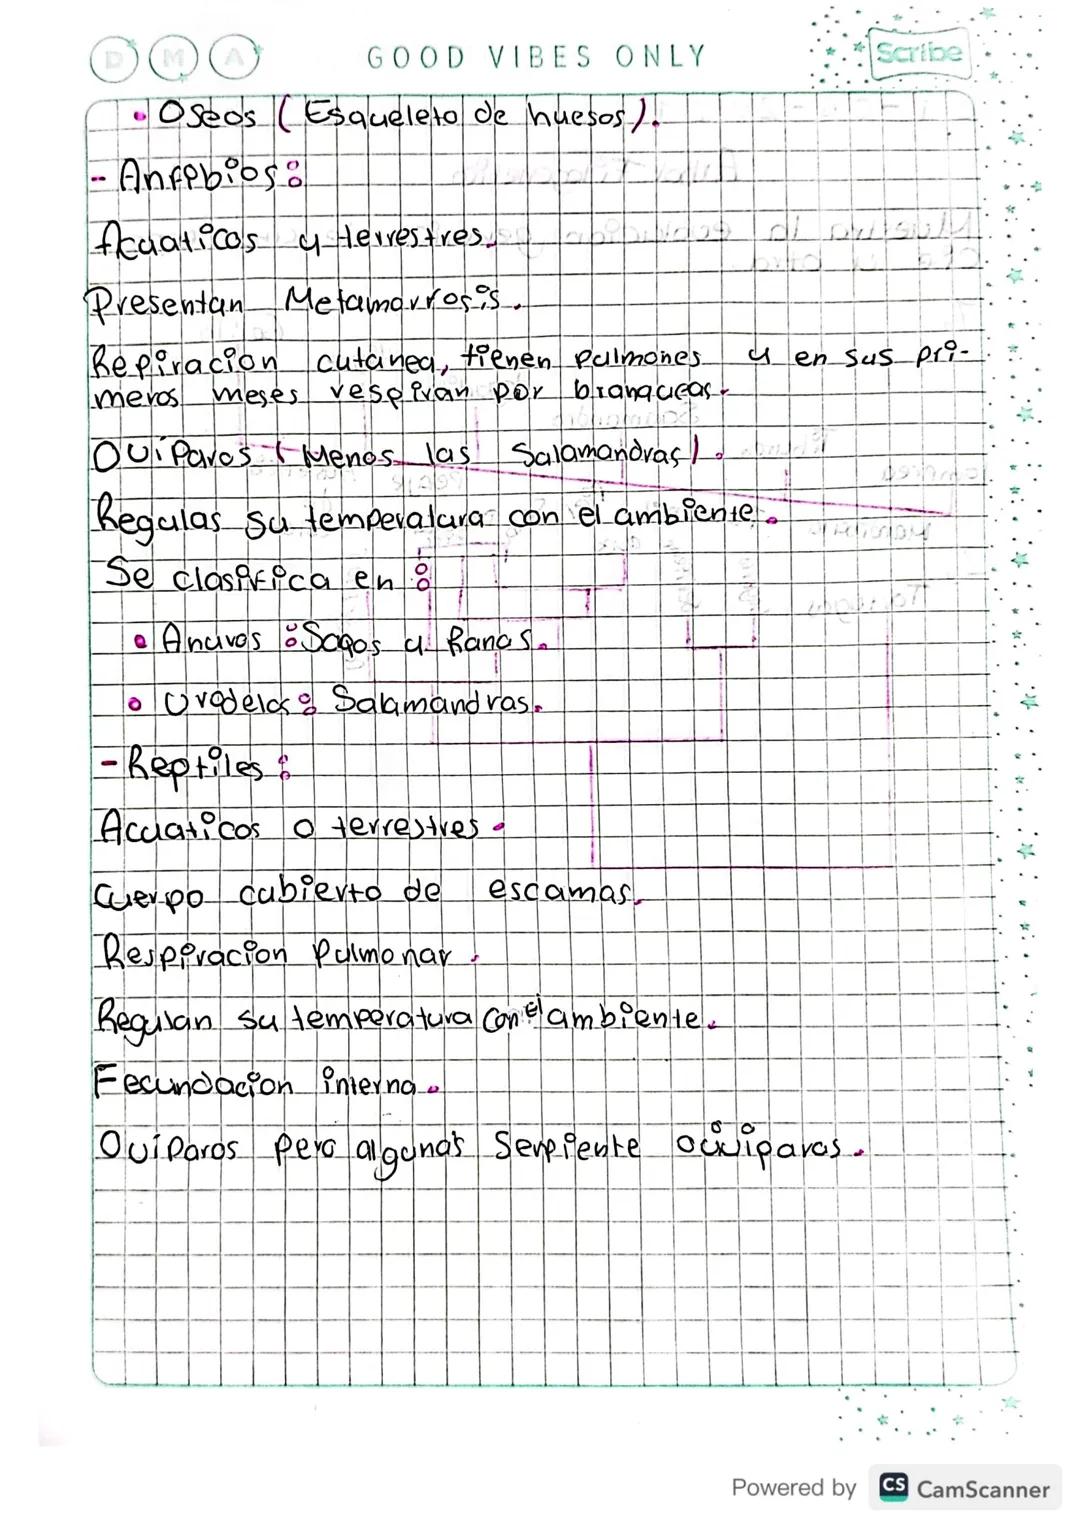 D M A GOOD VIBES ONLY Scribe
• Oseos (Esqueleto de huesos).
- Anfibios:
Acuaticos y terrestres.
Presentan Metamorfosis.
Repiracion cutanea, tienen pulmones y en sus pri-
meros meses respiran por branqueas.
Oviparos (Menos las Salamandras).
Regulas su temperatura con el ambiente.
Se clasifica en:
• Anuros: Sapos y Ranas.
• Urodelos: Salamandras.
- Reptiles:
Acuaticos o terrestres.
Cuerpo cubierto de escamas.
Respiracion Pulmonar.
Regulan su temperatura con el ambiente.
Fecundacion interna.
Oviparos pero algunas Serpiente
Powered by CS CamScanner